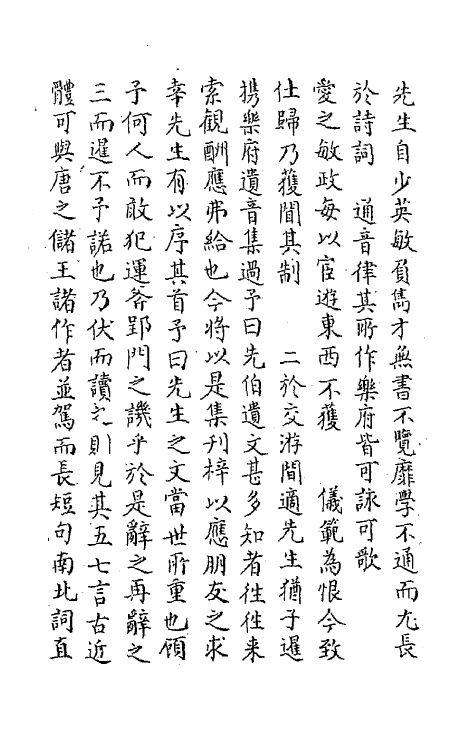 先生自少英敏負雋才無書不覽靡學不通而尤長
於詩詞　通音律其所作樂府皆可詠可歌
愛之敏政每以宦遊東西不獲　儀範為恨今致
仕歸乃獲閱其制　二於交游間適先生猶子暹
携樂府遺音集過予曰先伯遺文甚多知者往往来
索觀酬應弗給也今將以是集刊梓以應朋友之求
幸先生有以序其首予曰先生之文當世所重也顧
予何人而敢犯運斧郢門之譏乎於是辭之再辭之
三而暹不予諾也乃伏而讀之則見其五七言古近
體可與唐之儲王諸作者並駕而長短句南北詞直